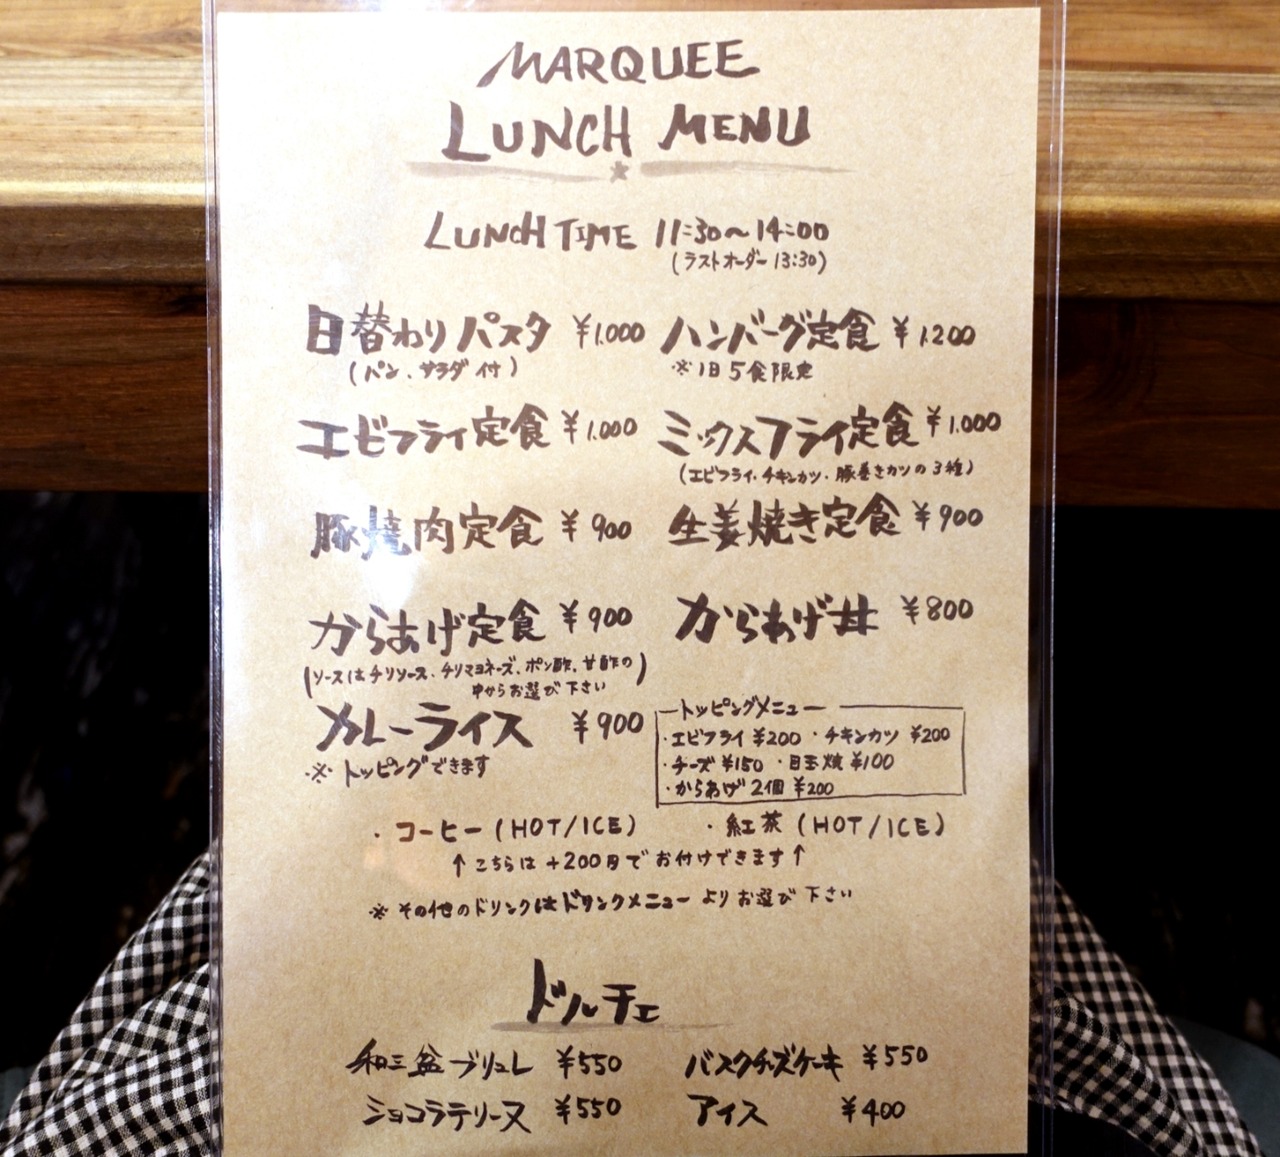 MARQUEE
LUNCH MENU
LUNCH TIME 11:30〜14:00
(ラストオーダー 13:30)
日替わりパスタ ¥1.000
(パン、サラダ付)
ハンバーグ定食 ¥1.200
※1日5食限定
エビフライ定食 ¥1.000
ミックスフライ定食 ¥1.000
(エビフライ・チキンカツ・豚巻きカツの3種)
豚焼肉定食 ¥900
生姜焼き定食 ¥900
からあげ定食 ¥900
(ソースはチリソース、チリマヨネーズ、ポン酢、甘酢の
中からお選び下さい)
からあげ丼 ¥800
カレーライス ¥900
※トッピングできます
トッピングメニュー
・エビフライ ¥200 ・チキンカツ ¥200
・チーズ ¥150 ・目玉焼 ¥100
・からあげ 2個 ¥200
・コーヒー (HOT/ICE) ・紅茶 (HOT/ICE)
↑こちらは+200円でお付けできます↑
※その他のドリンクはドリンクメニューよりお選び下さい
ドルチェ
和三盆ブリュレ ¥550
バスクチーズケーキ ¥550
ショコラテリーヌ ¥550
アイス ¥400